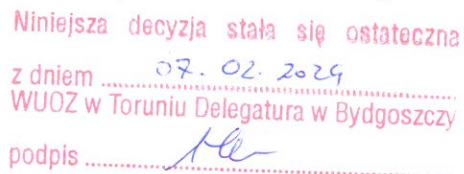 Niniejsza decyzja stała się ostateczna
z dniem 07. 02. 2024
WUOZ w Toruniu Delegatura w Bydgoszczy
podpis